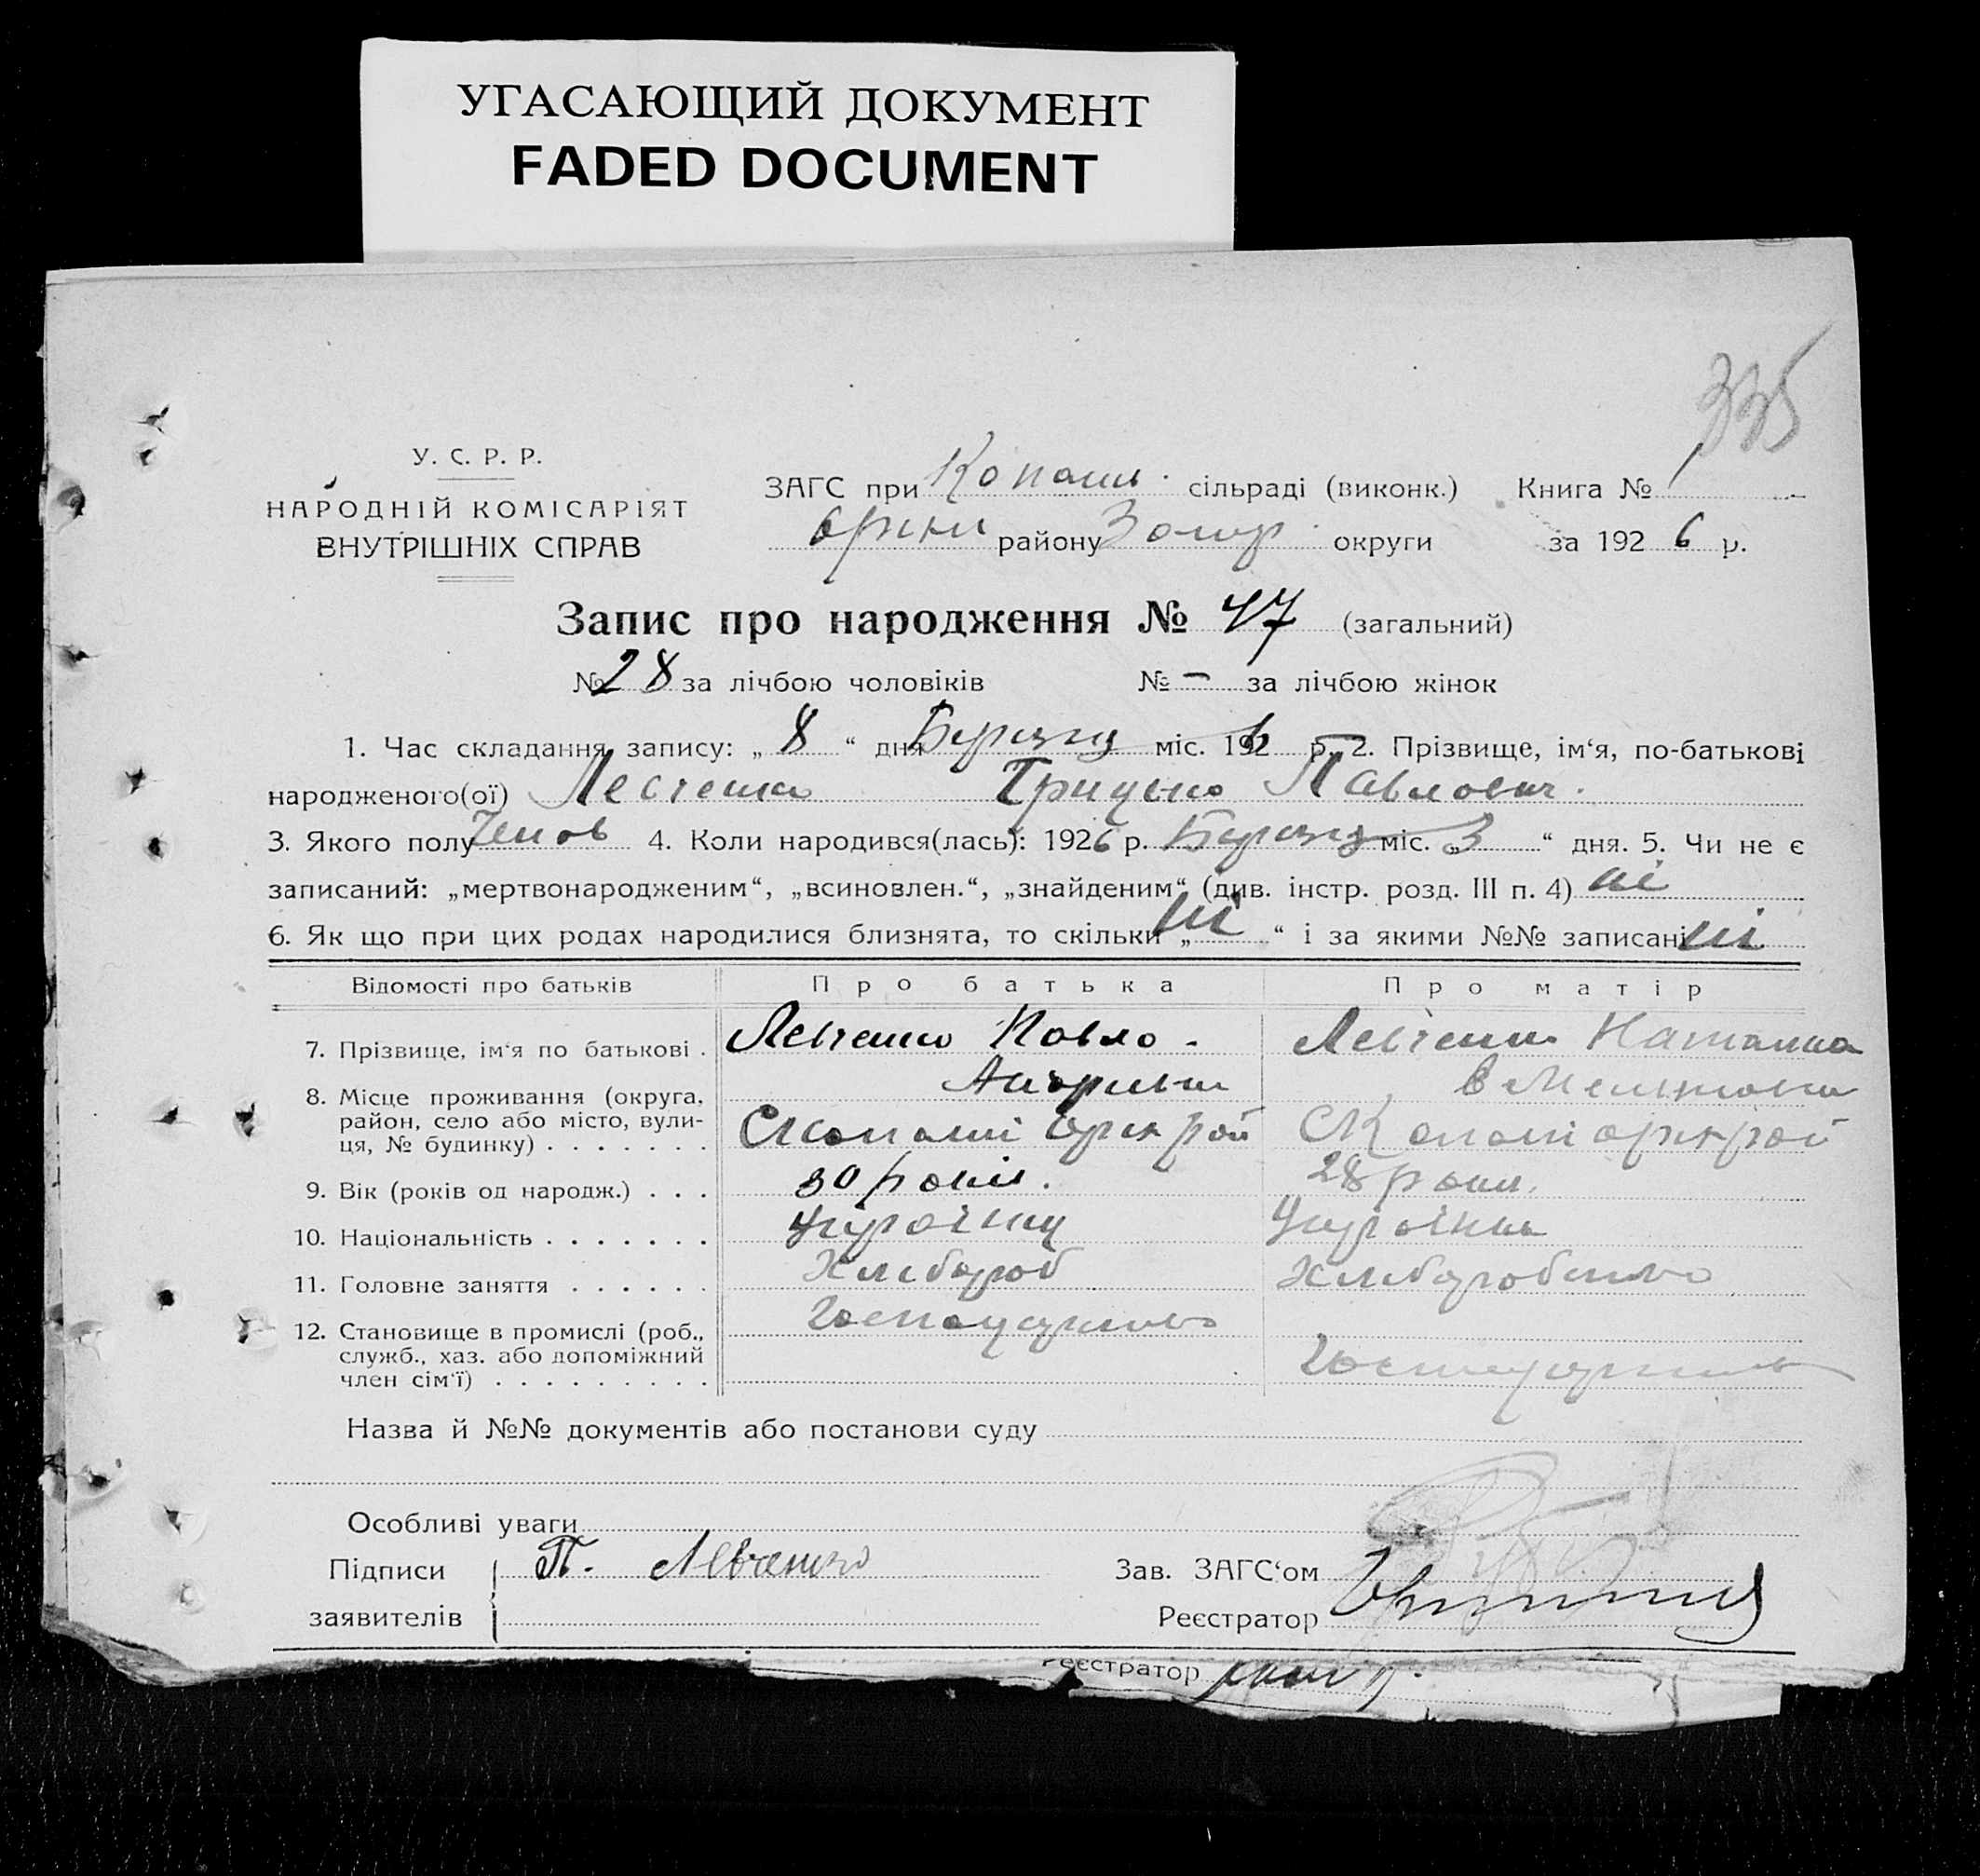 УГАСАЮЩИЙ ДОКУМЕНТ
FADED DOCUMENT
335
У. С. Р. Р.
НАРОДНІЙ КОМІСАРІЯТ
ВНУТРІШНІХ СПРАВ
ЗАГС при Копаш. сільраді (виконк.) Книга № 1
Оржи району Золот. округи за 1926 р.
Запис про народження № 47 (загальний)
№ 28 за лічбою чоловіків № – за лічбою жінок
1. Час складання запису: „ 8 “ дня Березня міс. 192 6 р. 2. Прізвище, ім‘я, по-батькові
народженого(ої) Левченко Грицько Павлович.
3. Якого полу Чолов 4. Коли народився(лась): 1926 р. Березня міс. „ 3 “ дня. 5. Чи не є
записаний: „мертвонародженим“, „всиновлен.“, „знайденим“ (див. інстр. розд. III п. 4) ні
6. Як що при цих родах народилися близнята, то скільки „ ні “ і за якими №№ записані ні
Відомості про батьків Про батька Про матір
7. Прізвище, ім‘я по батькові . Левченко Павло - Левченко Наталка
8. Місце проживання (округа,
район, село або місто, вули-
ця, № будинку) . . . . . . .
9. Вік (років од народж.) . . . 30 років. 28 роки.
10. Національність . . . . . . . Українц Українка
11. Головне заняття . . . . . . Хлібороб Хліборобство
12. Становище в промислі (роб.,
служб., хаз. або допоміжний
член сім‘ї) . . . . . . . . .
Назва й №№ документів або постанови суду
Особливі уваги
Підписи П. Левченко Зав. ЗАГС‘ом
заявителів Реєстратор
Реєстратор